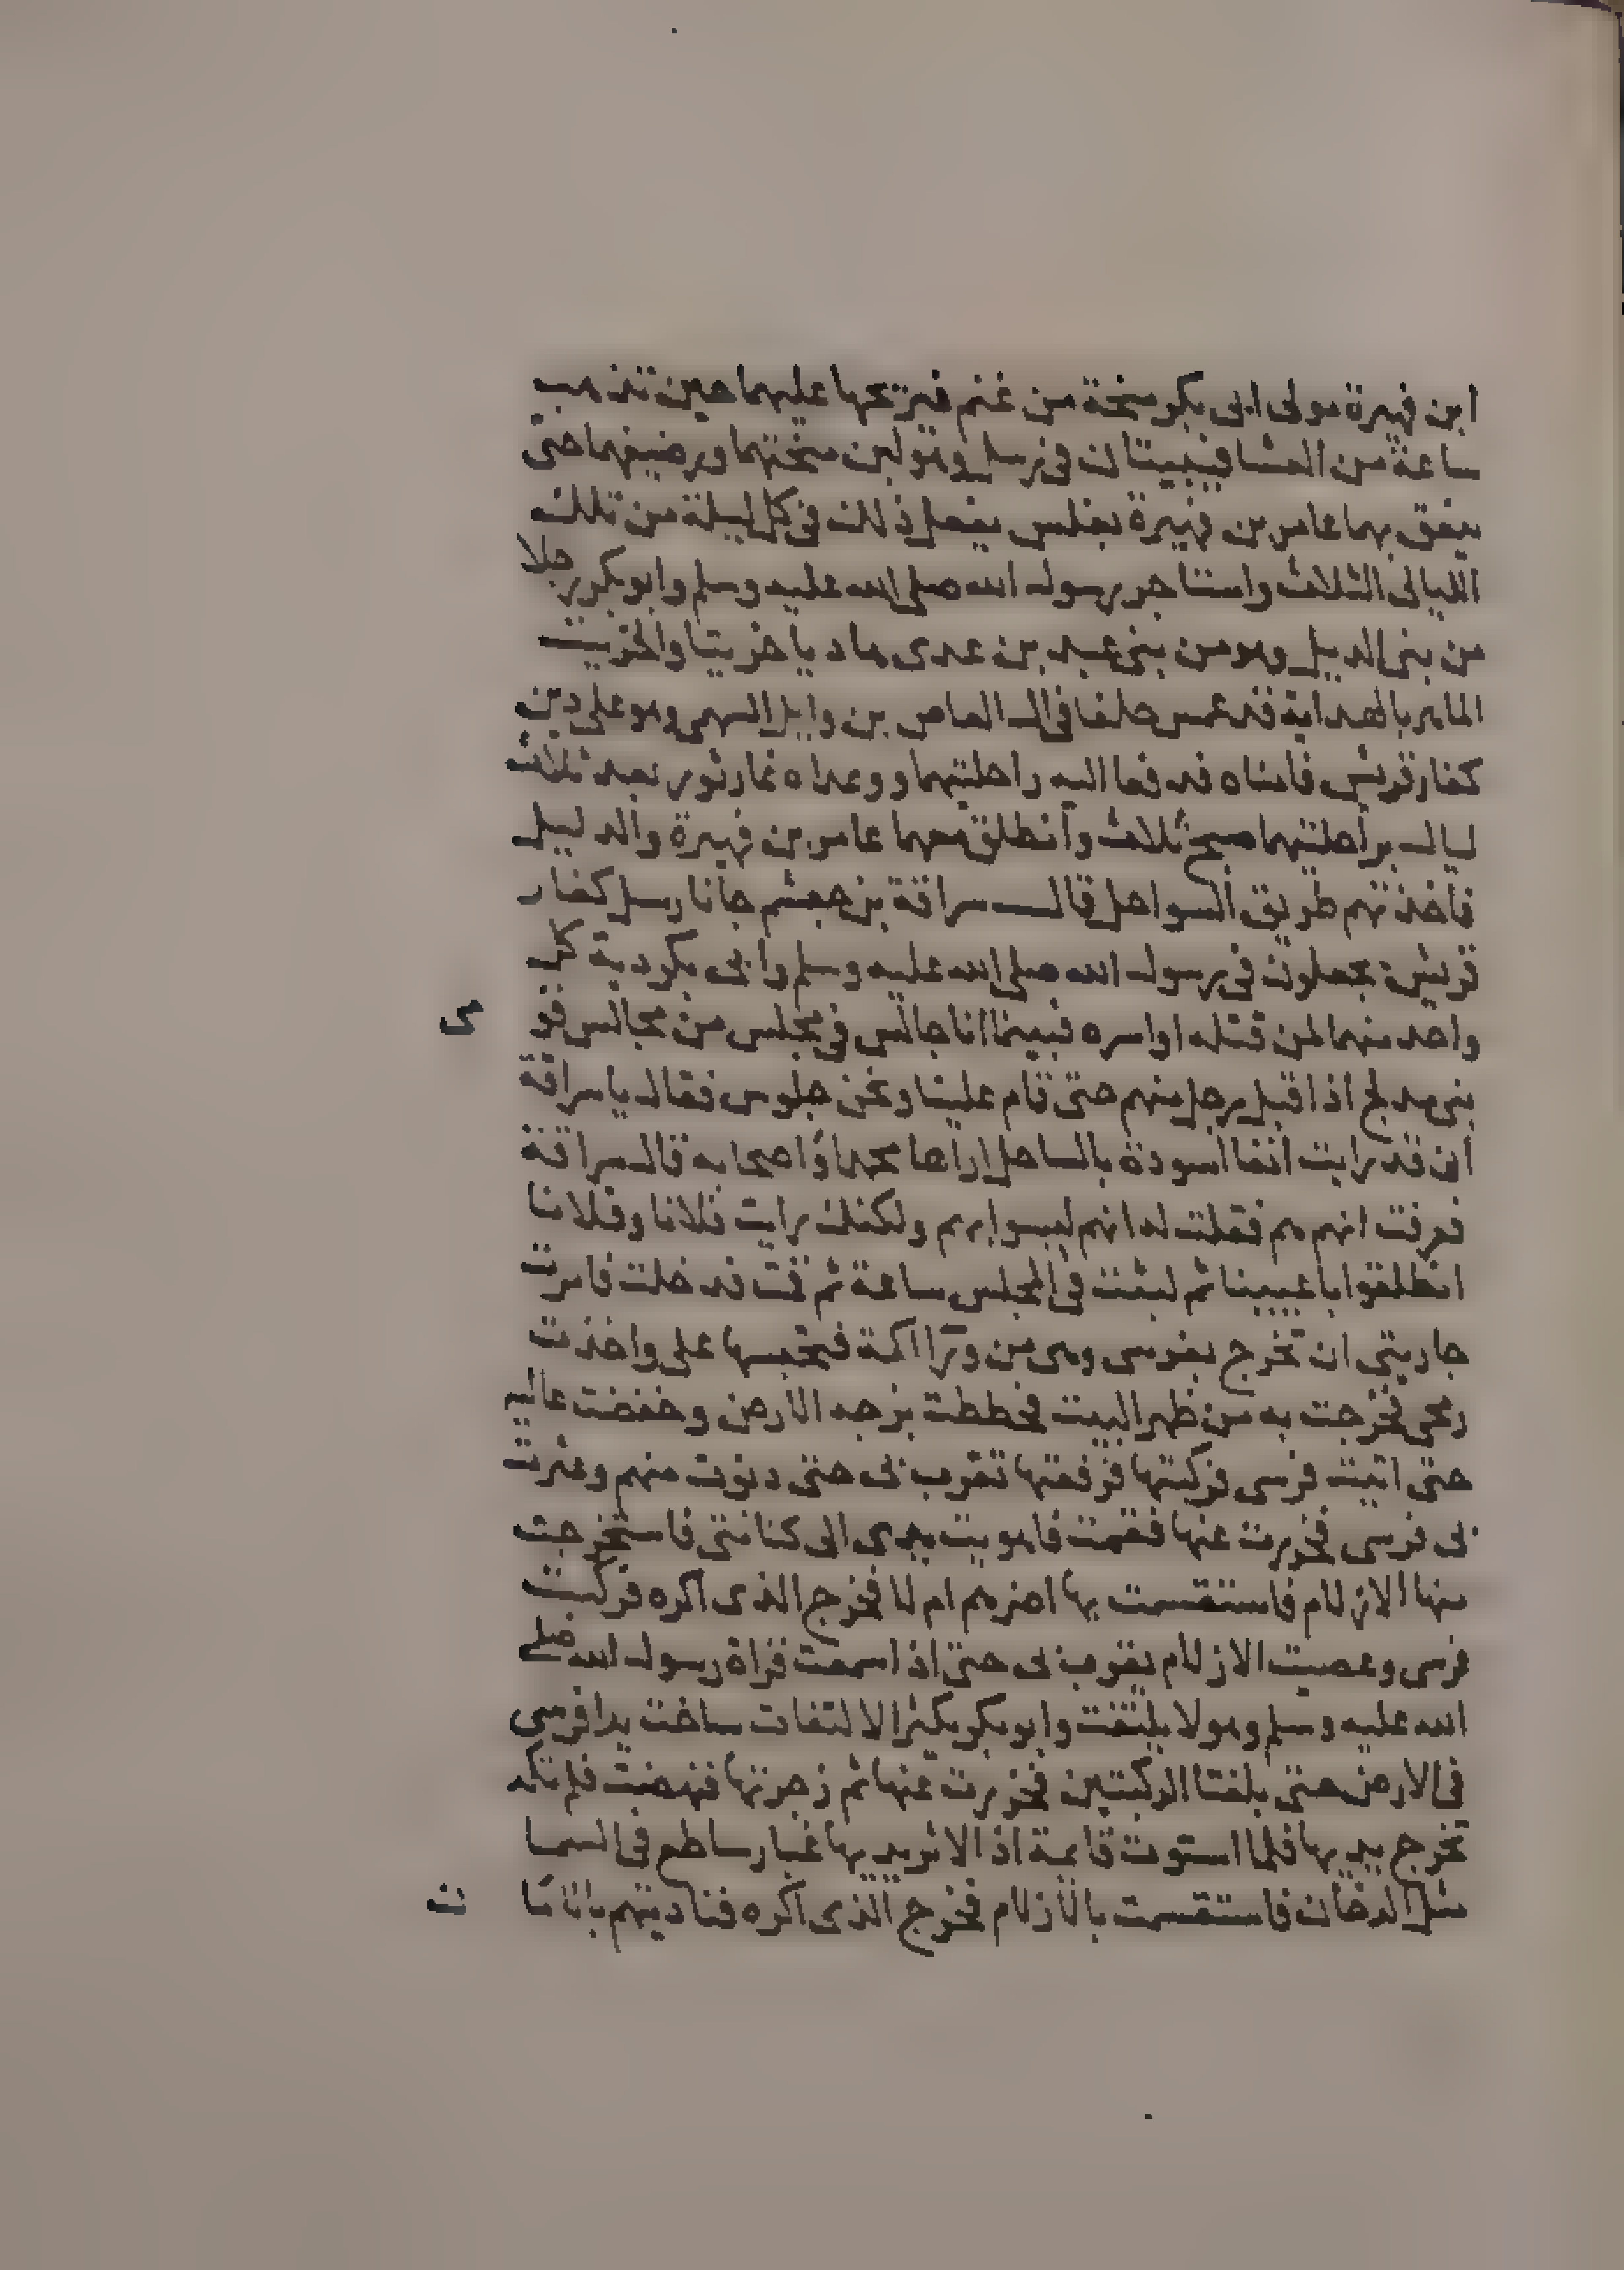 ابن فهيرة مولى ابى بكر منحة من غنم فيريحها عليهما حين تذهب
ساعة من العشا فيبيتان فى رسل وهو لبن منحتهما ورضيفهما حتى
ينعق بهما عامر بن فهيرة بغلس يفعل ذلك فى كل ليلة من تلك
الليالى الثلاث واستاجر رسول الله صلى الله عليه وسلم وابو بكر رجلا
من بنى الديل وهو من بنى عبد بن عدى هاديا خريتا والخريت
الماهر بالهداية قد غمس حلفا فى ال العاص بن وايل السهمى وهو على دين
كفار قريش فامناه فدفعا اليه راحلتيهما وواعداه غار ثور بعد ثلاث
ليال براحلتيهما صبح ثلاث وانطلق معهما عامر بن فهيرة والدليل
فاخذ بهم طريق السواحل قال سراقة بن جعشم جانا رسل كفار
قريش يجعلون فى رسول الله صلى الله عليه وسلم وابى بكر دية كل
واحد منهما لمن قتله او اسره فبينما انا جالس فى مجلس من مجالس قو
مى
بنى مدلج اذ اقبل رجل منهم حتى قام علينا ونحن جلوس فقال يا سراقة
ان قد رايت انفا اسودة بالساحل اراها محمدا واصحابه قال سراقة
فعرفت انهم هم فقلت له انهم ليسوا بهم ولكنك رايت فلانا وفلانا
انطلقوا باعيننا ثم لبثت فى المجلس ساعة ثم قمت فدخلت فامرت
جاريتى ان تخرج بفرسى وهى من ورا اكمة فتحبسها على واخذت
رمحى فخرجت به من ظهر البيت فخططت بزجه الارض وخفضت عاليه
حتى اتيت فرسى فركبتها فرفعتها تقرب بى حتى دنوت منهم وعثرت
بى فرسى فخررت عنها فقمت فاهويت بيدى الى كنانتى فاستخرجت
منها الازلام فاستقسمت بها اضرهم ام لا فخرج الذى اكره فركبت
فرسى وعصيت الازلام تقرب بى حتى اذا سمعت قراة رسول الله صلى
الله عليه وسلم وهو لا يلتفت وابو بكر يكثر الالتفات ساخت يدا فرسى
فى الارض حتى بلغتا الركبتين فخررت عنها ثم زجرتها فنهضت فلم تكد
تخرج يديها فلما استوت قايمة اذ الاثر يديها غبار ساطع فى السما
مثل الدخان فاستقسمت بالازلام فخرج الذى اكره فناديتهم بالاما
ن